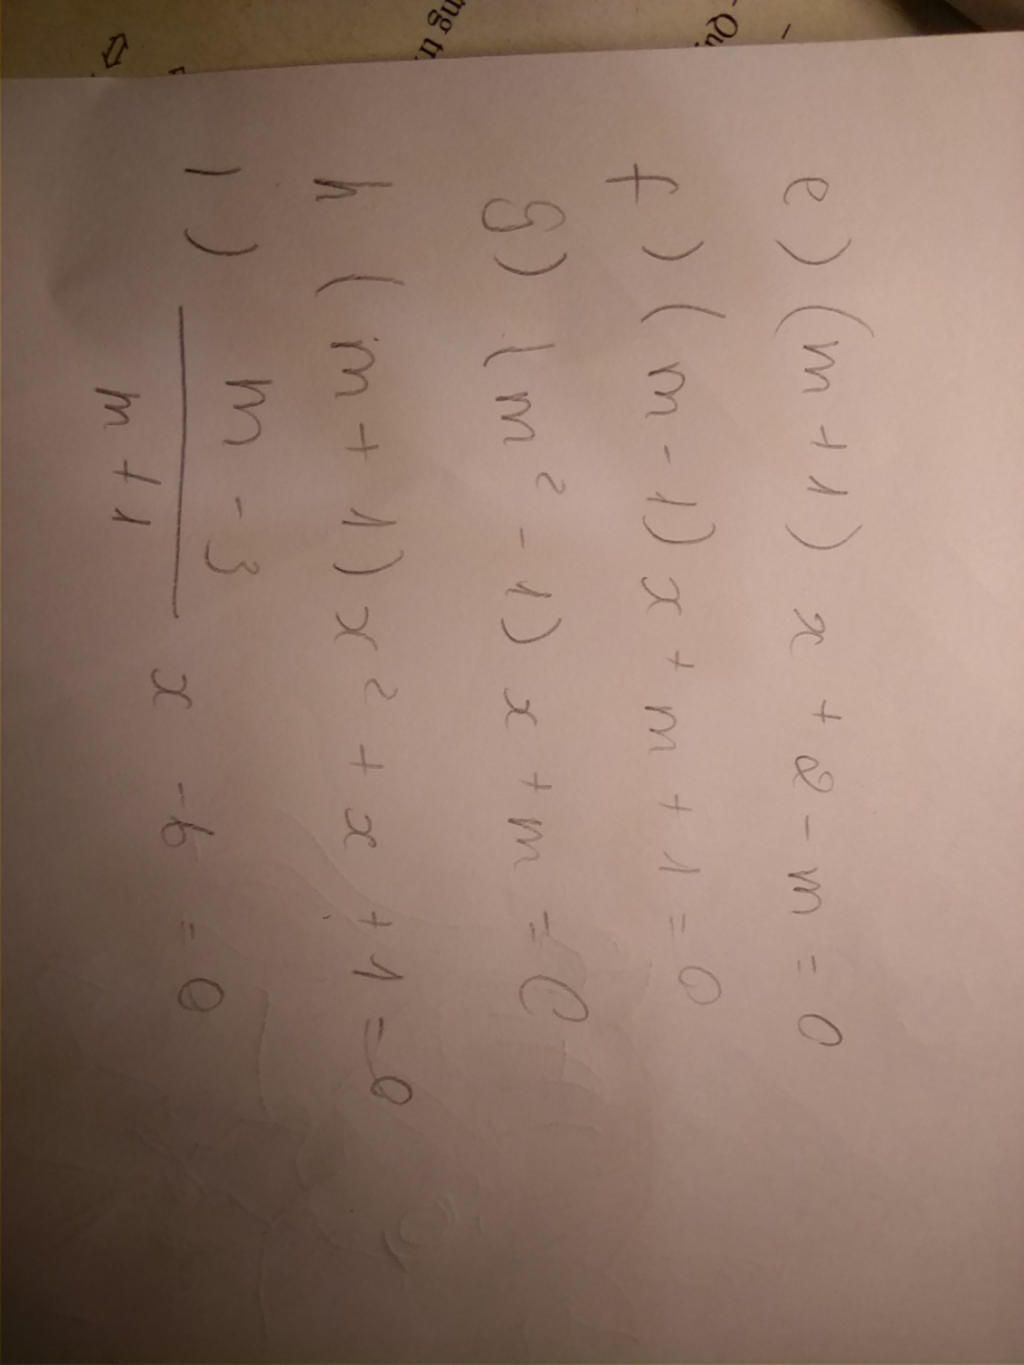 e) (m + 1) x + 2 - m = 0
f) (m - 1) x + m + 1 = 0
g) (m² - 1) x + m = 0
h (m + 1) x² + x + 1 = 0
1) m - 3
m + 1
x - 6 = 0